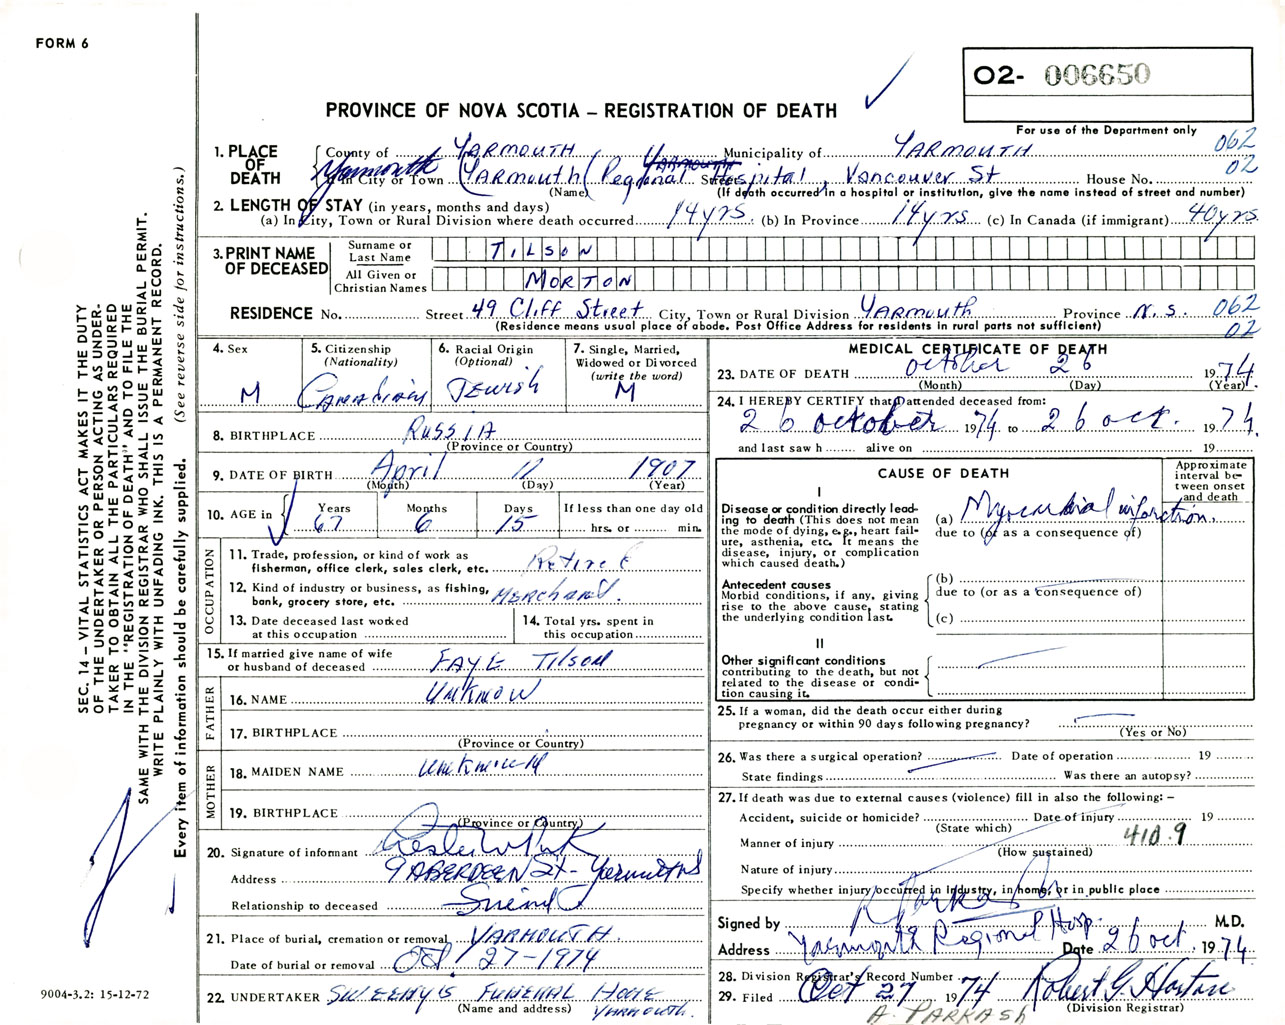 FORM 6
O2- 006650
PROVINCE OF NOVA SCOTIA – REGISTRATION OF DEATH
For use of the Department only
1. PLACE OF DEATH
County of Yarmouth Municipality of Yarmouth 062
Yarmouth Yarmouth
If in City or Town Yarmouth (Regional Street Hospital, Vancouver St House No. 02
(Name) (If death occurred in a hospital or institution, give the name instead of street and number)
2. LENGTH OF STAY (in years, months and days)
(a) In City, Town or Rural Division where death occurred 14 yrs (b) In Province 14 yrs (c) In Canada (if immigrant) 40 yrs
3. PRINT NAME OF DECEASED
Surname or Last Name TILSON
All Given or Christian Names MORTON
RESIDENCE No. Street 49 Cliff Street City, Town or Rural Division Yarmouth Province N.S. 062
(Residence means usual place of abode. Post Office Address for residents in rural parts not sufficient) 02
4. Sex M
5. Citizenship (Nationality) Canadian
6. Racial Origin (Optional) Jewish
7. Single, Married, Widowed or Divorced (write the word) M
8. BIRTHPLACE Russia
(Province or Country)
9. DATE OF BIRTH April 11 1907
(Month) (Day) (Year)
10. AGE in Years 67 Months 6 Days 15 If less than one day old hrs. or min.
OCCUPATION
11. Trade, profession, or kind of work as fisherman, office clerk, sales clerk, etc. Retired
12. Kind of industry or business, as fishing, bank, grocery store, etc. Merchant.
13. Date deceased last worked at this occupation
14. Total yrs. spent in this occupation
15. If married give name of wife or husband of deceased Faye Tilson
FATHER
16. NAME Unknow
17. BIRTHPLACE
(Province or Country)
MOTHER
18. MAIDEN NAME Unknown
19. BIRTHPLACE
(Province or Country)
20. Signature of informant
Address 9 Aberdeen St - Yarmouth NS
Relationship to deceased Friend
21. Place of burial, cremation or removal Yarmouth.
Date of burial or removal Oct 27-1974
22. UNDERTAKER Sweeny's Funeral Home
(Name and address) Yarmouth.
MEDICAL CERTIFICATE OF DEATH
23. DATE OF DEATH October 26 1974
(Month) (Day) (Year)
24. I HEREBY CERTIFY that I attended deceased from:
26 October 1974 to 26 Oct. 1974
and last saw h alive on 19
CAUSE OF DEATH
Approximate interval between onset and death
I
Disease or condition directly leading to death (This does not mean the mode of dying, e.g., heart failure, asthenia, etc. It means the disease, injury, or complication which caused death.)
(a) Myocardial infarction.
due to (or as a consequence of)
Antecedent causes
Morbid conditions, if any, giving rise to the above cause, stating the underlying condition last.
(b)
due to (or as a consequence of)
(c)
II
Other significant conditions contributing to the death, but not related to the disease or condition causing it.
25. If a woman, did the death occur either during pregnancy or within 90 days following pregnancy?
(Yes or No)
26. Was there a surgical operation? Date of operation 19
State findings Was there an autopsy?
27. If death was due to external causes (violence) fill in also the following: –
Accident, suicide or homicide? Date of injury 19
(State which)
Manner of injury 410.9
(How sustained)
Nature of injury
Specify whether injury occurred in Industry, in home, or in public place
Signed by A Parkash M.D.
Address Yarmouth Regional Hosp. Date 26 Oct. 1974
28. Division Registrar's Record Number
29. Filed Oct 27 1974 Robert G. Horton
(Division Registrar)
A. PARKASH
SEC. 14 – VITAL STATISTICS ACT MAKES IT THE DUTY
OF THE UNDERTAKER OR PERSON ACTING AS UNDER-
TAKER TO OBTAIN ALL THE PARTICULARS REQUIRED
IN THE "REGISTRATION OF DEATH" AND TO FILE THE
SAME WITH THE DIVISION REGISTRAR WHO SHALL ISSUE THE BURIAL PERMIT.
WRITE PLAINLY WITH UNFADING INK. THIS IS A PERMANENT RECORD.
Every item of information should be carefully supplied. (See reverse side for instructions.)
9004-3.2: 15-12-72